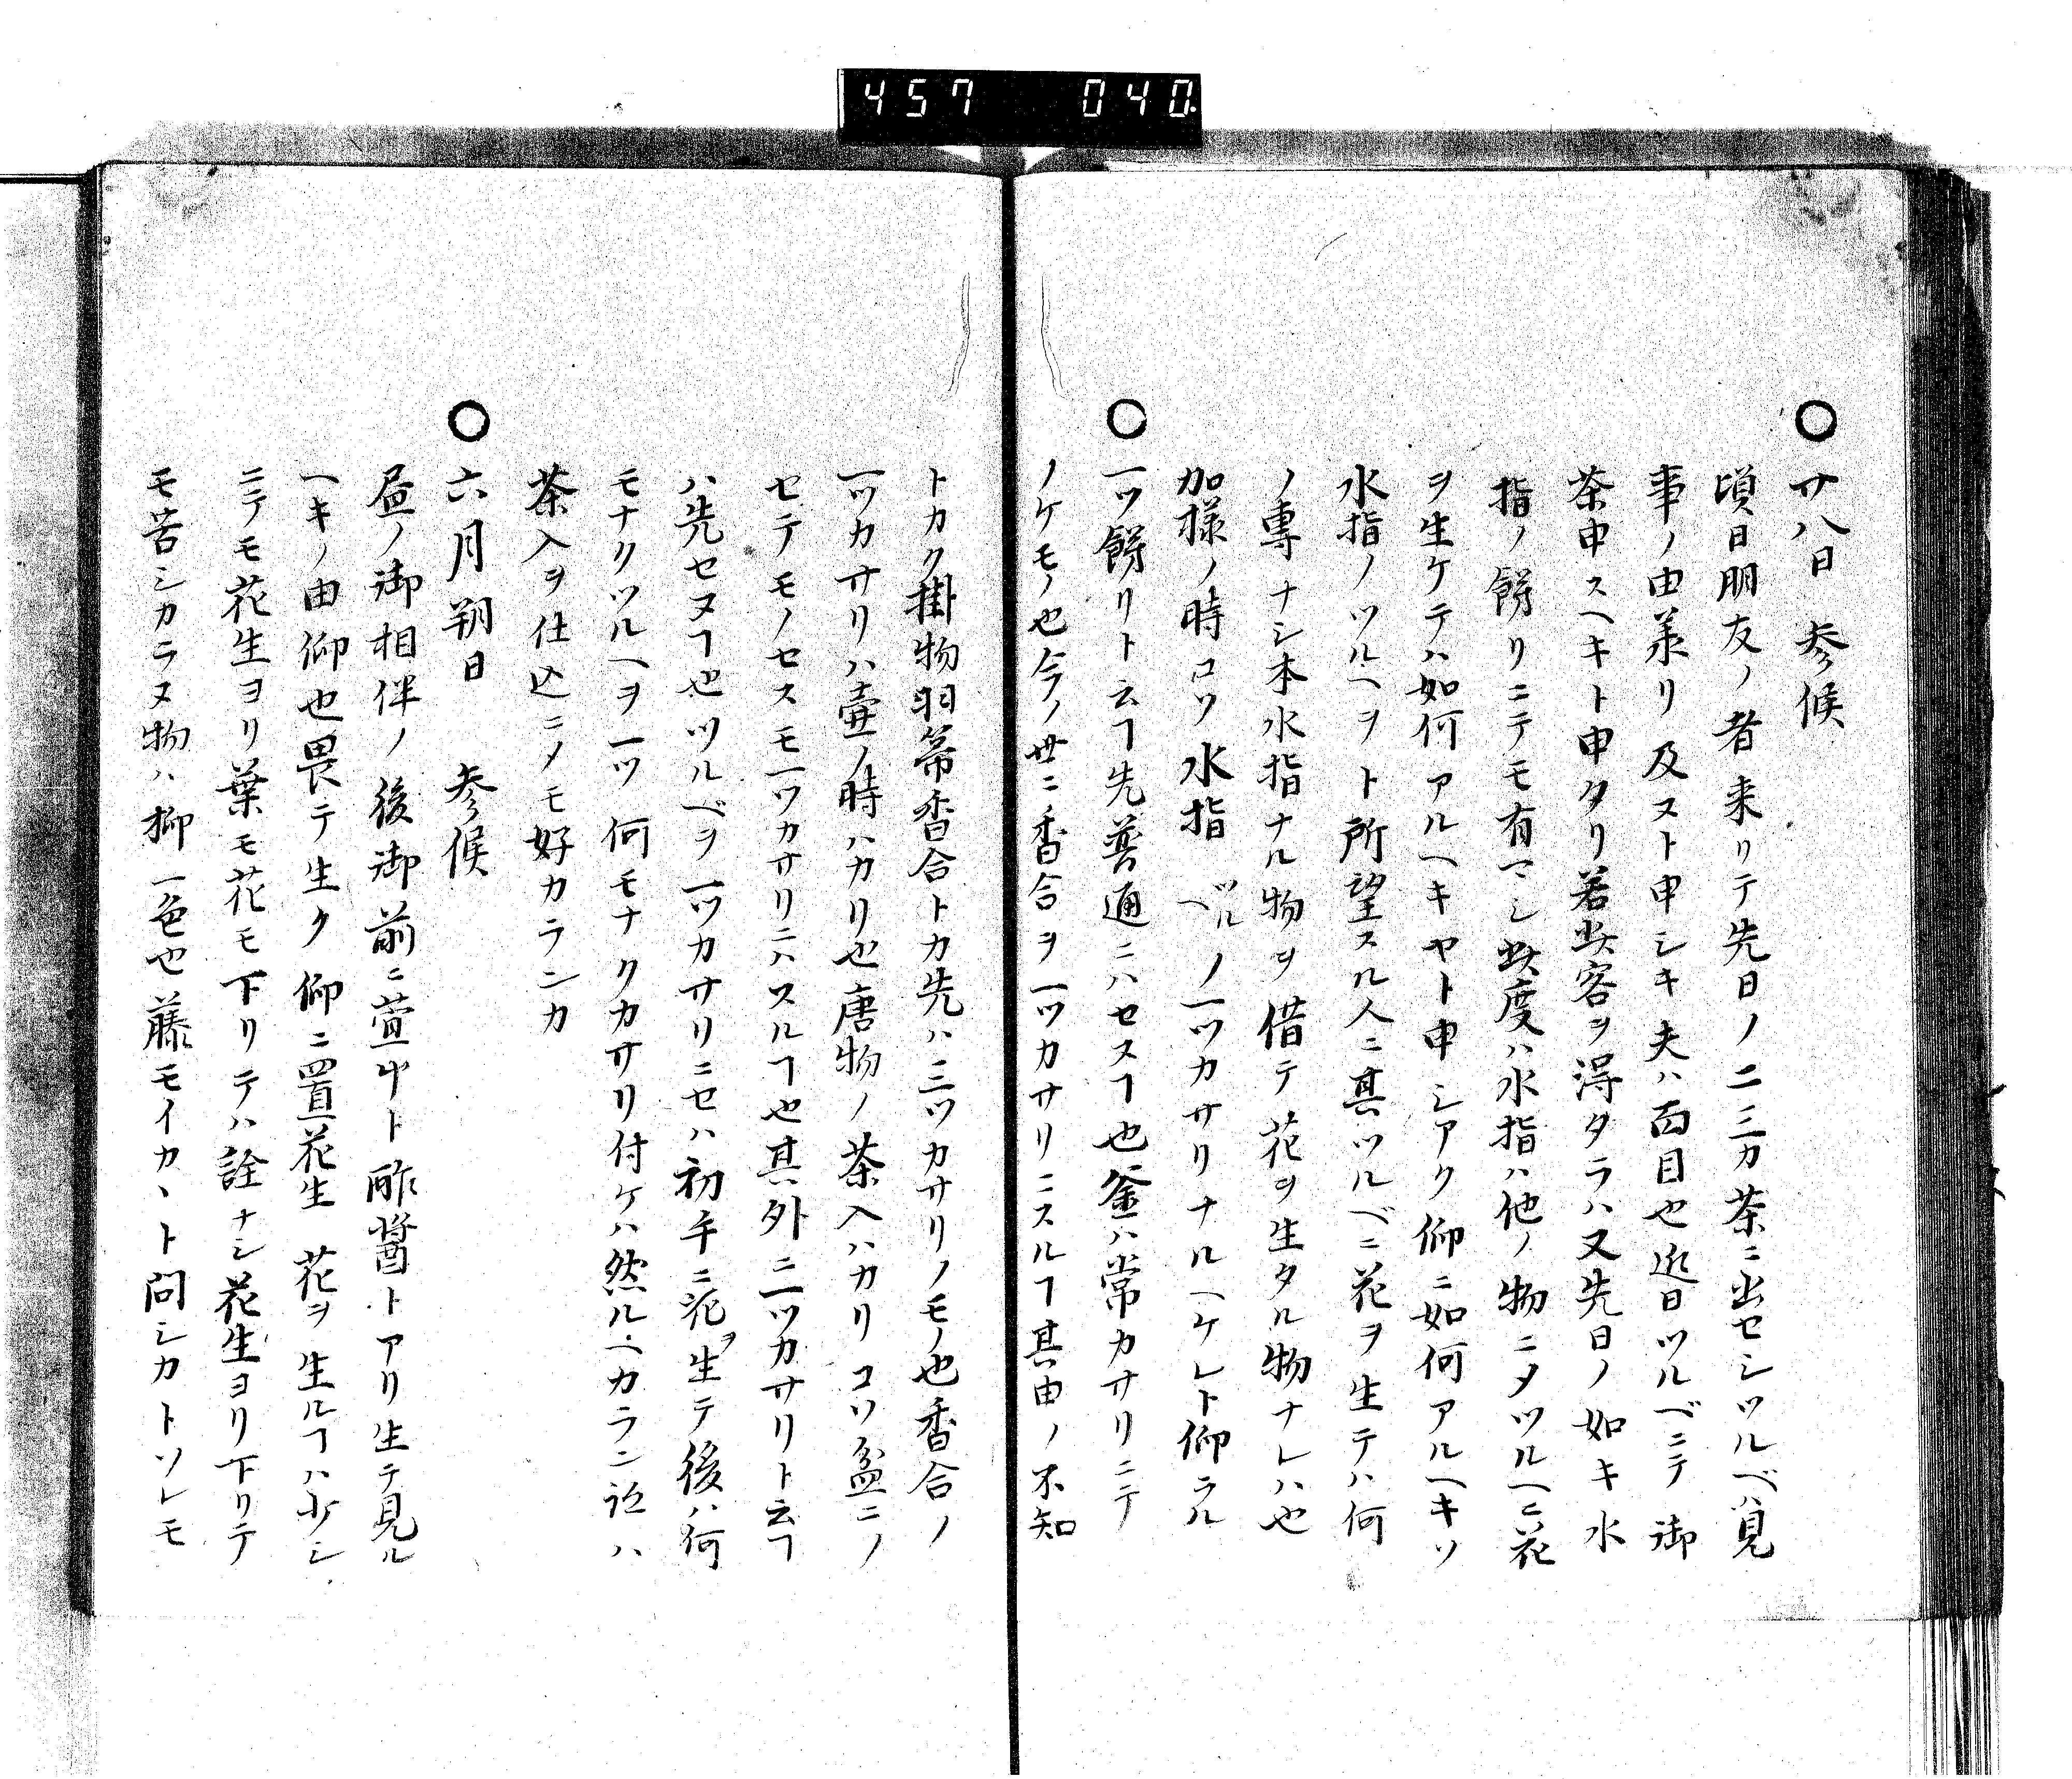 457 040
〇廿八日 参候
頃日朋友ノ者来リテ先日ノ二三カ茶ニ出セシツルベハ見
事ノ由承リ及ヌト申シキ夫ハ面目也近日ツルベニテ御
茶申スヘキト申タリ若此客ヲ得タラハ又先日ノ如キ水
指ノ餝リニテモ有マシ此度ハ水指ハ他ノ物ニタツルヘニ花
ヲ生ケテハ如何アルヘキヤト申シアク仰ニ如何アルヘキソ
水指ノツルヘヲト所望スル人ニ其ツルベニ花ヲ生テハ何
ノ専ナシ本水指ナル物ヲ借テ花ヲ生タル物ナレハ也
加様ノ時コソ水指ツルベノ一ツカサリナルヘケレト仰ラル
〇一ツ餝リト云フ先普通ニハセスヿ也釜ハ常カサリニテ
ノケモノ也今ノ世ニ香合ヲ一ツカサリニスルヿ其由ノ不知
トカク掛物羽箒香合トカ先ハ三ツカサリノモノ也香合ノ
一ツカサリハ壷ノ時ハカリ也唐物ノ茶入ハカリコソ盆ニノ
セテモノセスモ一ツカサリニハスルヿ也其外ニ一ツカサリト云ヿ
ハ先セヌヿ也ツルベヲ一ツカサリニセハ初手ニ花ヲ生テ後ハ何
モナクツルヘヲ一ツ何モナクカサリ付ケハ然ルヘカラン訟ハ
茶入ヲ仕込ニメモ好カランカ
〇六月朔日 参候
昼ノ御相伴ノ後御前ニ萱艸ト酢醤トアリ生テ見ル
ヘキノ由仰也畏テ生ク仰ニ置花生花ヲ生ルヿハ少シ
ニテモ花生ヨリ葉モ花モ下リテハ詮ナシ花生ヨリ下リテ
モ苦シカラヌ物ハ柳一色也藤モイカヽト問シカトソレモ